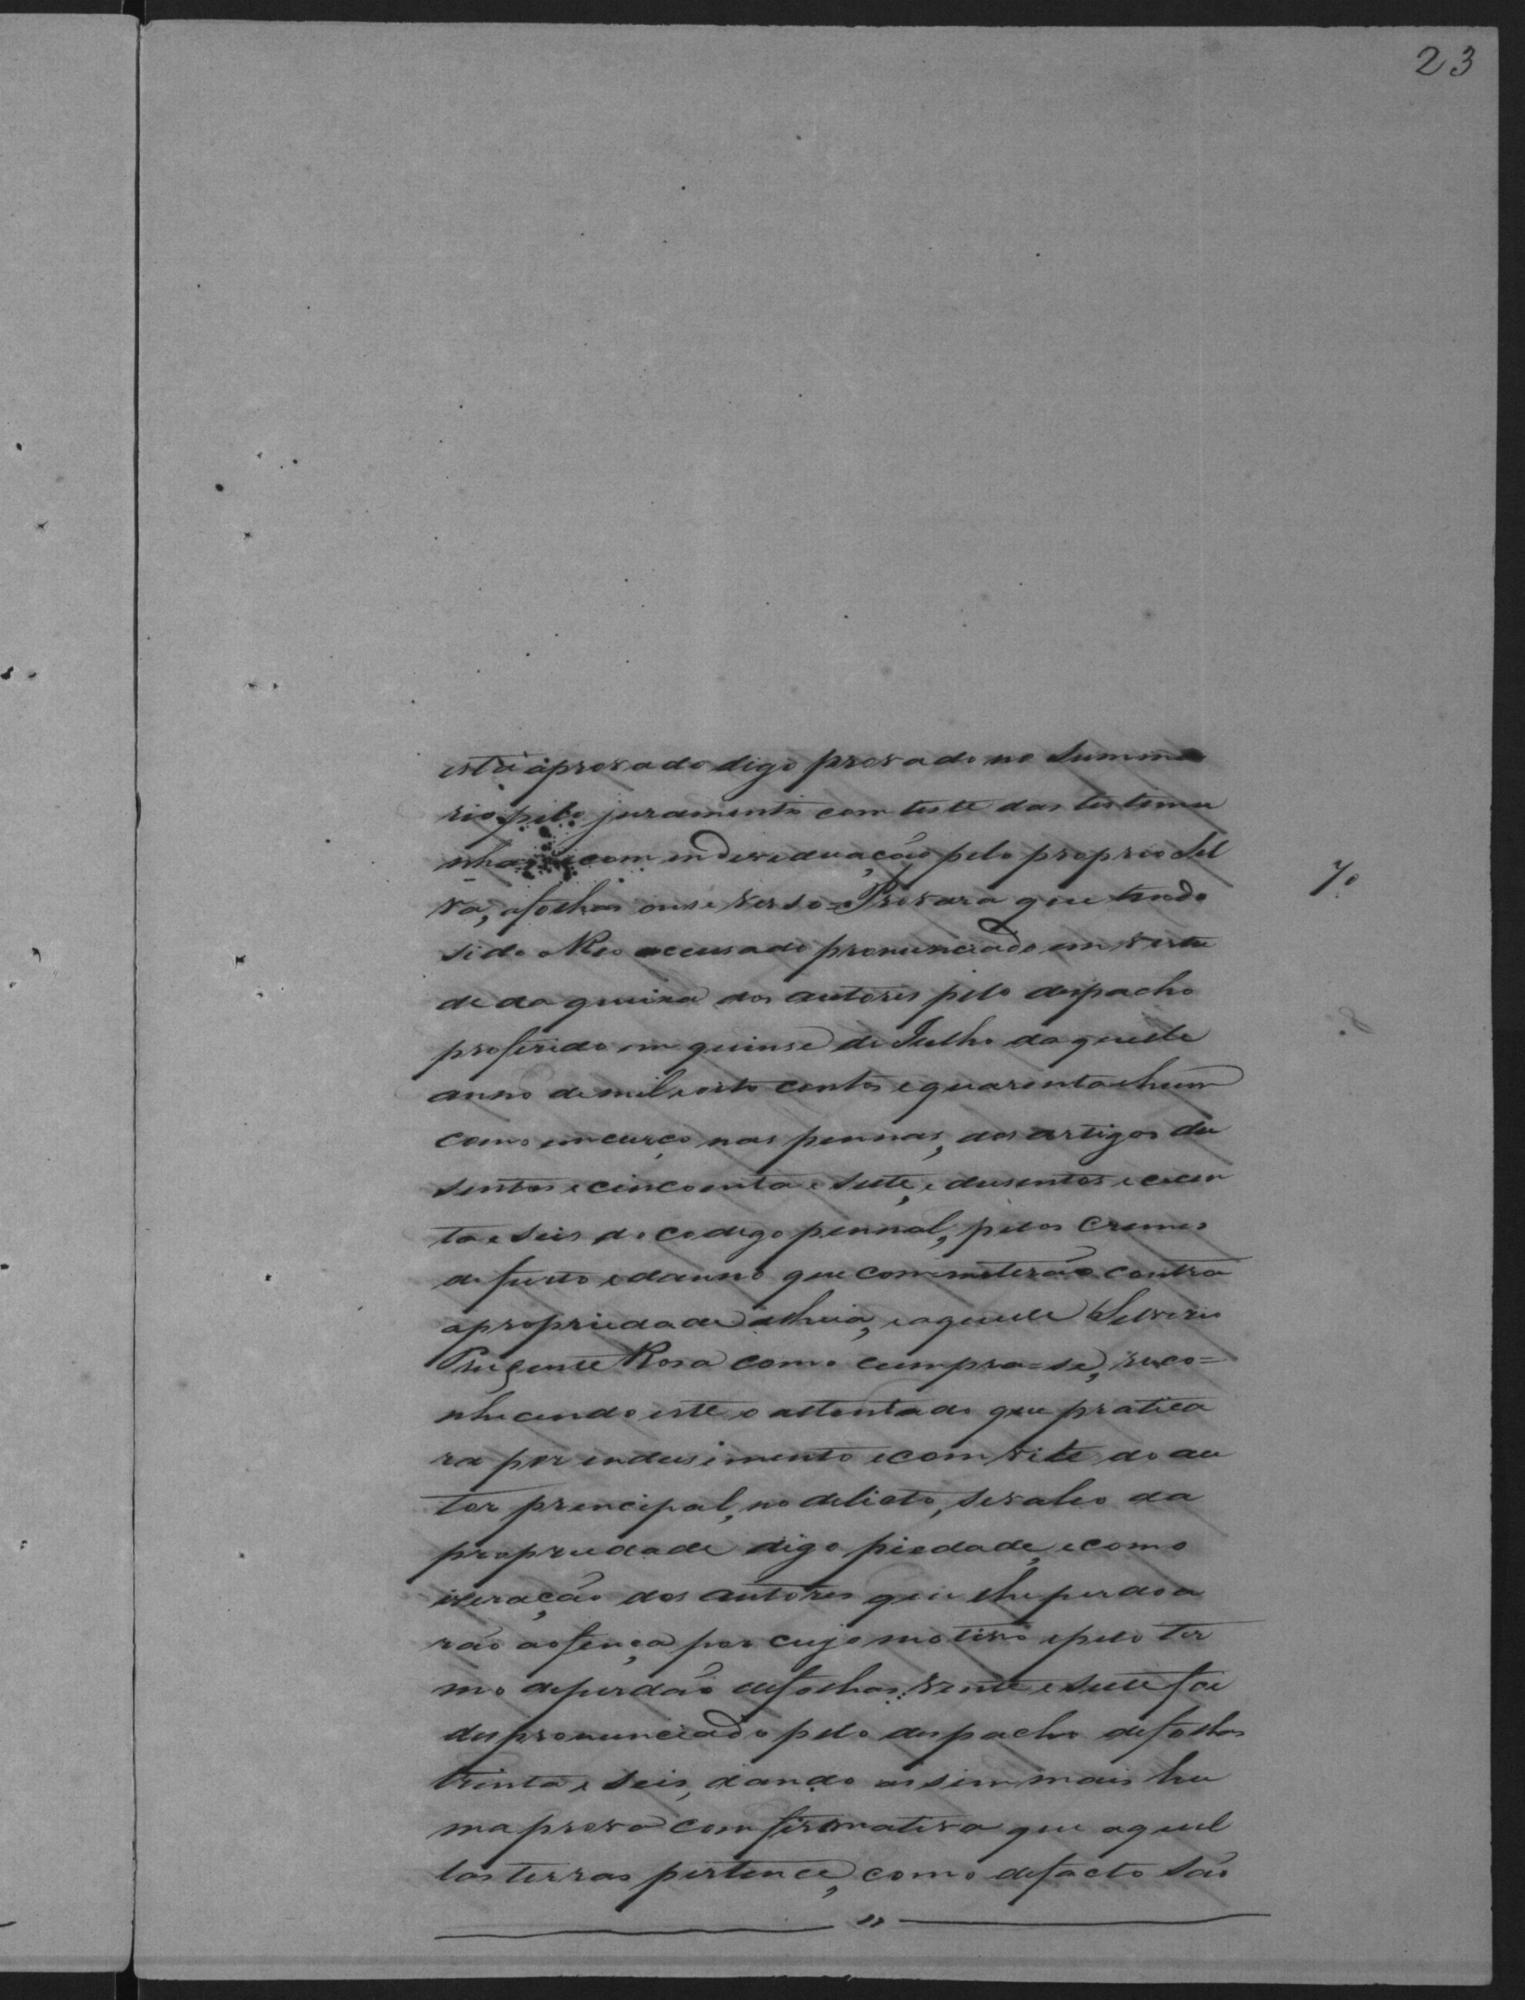 23
está aprovado digo provado no Summa
rio pelo juramento com teste das testemu
nhas, e com endeveduação pelo proprio Sil
va, afolhas onse verso = Provara que tendo
7º
sido o Reo accusado pronunciado em vertu
de da queixa dos autores pelo despacho
proferido em quinse de Julho daquele
anno de mil e oito centos e quarenta e hum
como emcurço nas pennas, dos artigos du
sentos e cincoenta e sete, e dusentos e cecen
ta e seis do codego pennal, pelos Cremes
de furto e danno que commeterão contra
apropriedade alheia, e aquele Silverio
Prudente Rosa como cumpra=se, reco=
nhecendo este o attentado que pratica
ra por endusimento e com vite do au
tor prencipal, no delicto, se valeo da
propriedade digo piedade, e como
iseração dos autores que lhe perdoa
rão aofença por cujo motivo e pelo ter
mo de perdão defolhas vente e sete foi
despronunciado pelo despacho defolhas
trinta e seis, dando assim mais hu
ma prova comfirmativa que aquel
las terras pertence, como defacto são